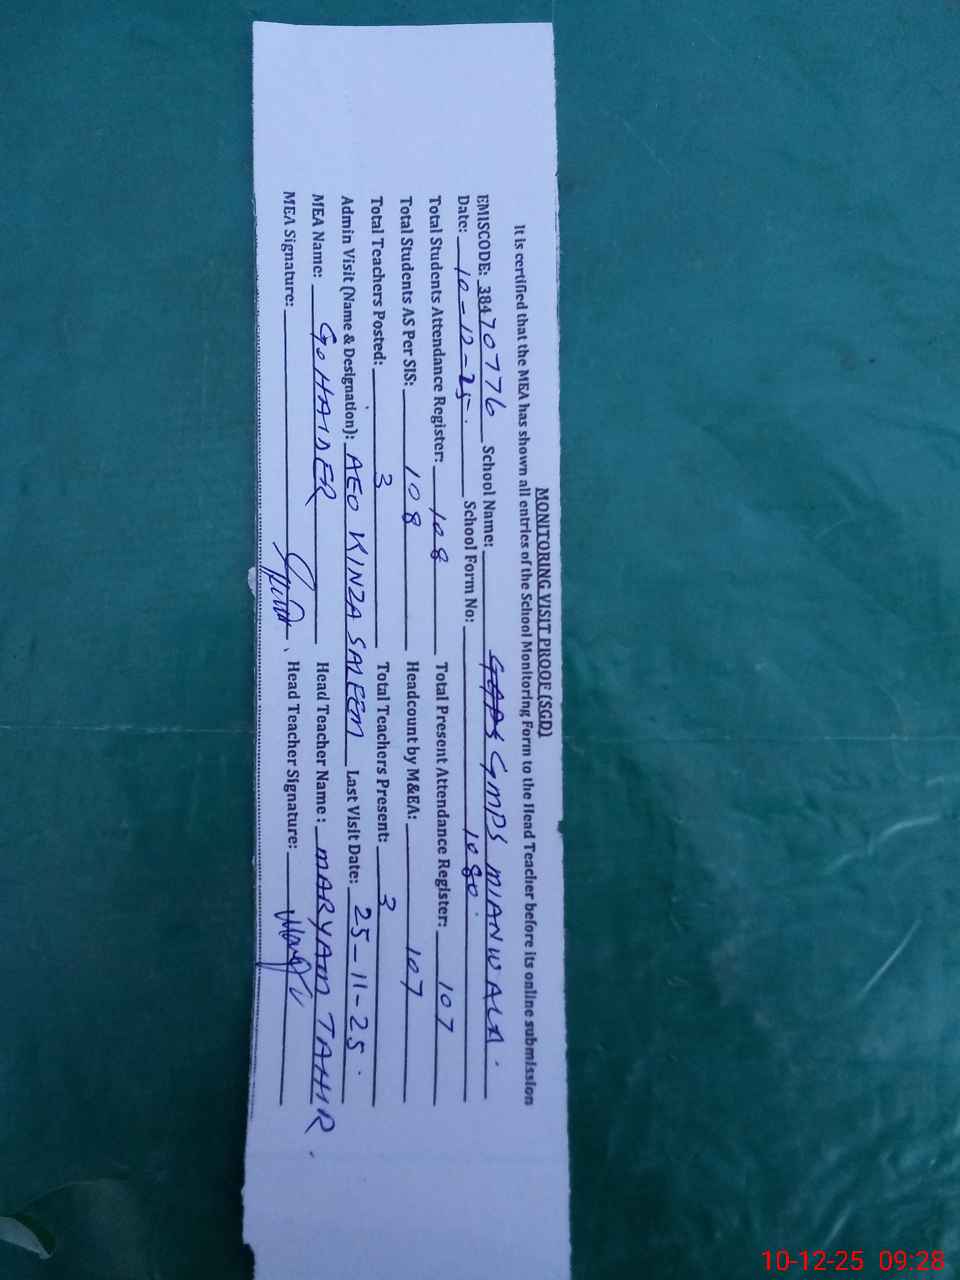 MONITORING VISIT PROOF (SGD)
It is certified that the MEA has shown all entries of the School Monitoring Form to the Head Teacher before its online submission
EMISCODE: 38470776 School Name: GMPS MIANWALA.
Date: 10-12-25. School Form No: 1080.
Total Students Attendance Register: 108 Total Present Attendance Register: 107
Total Students AS Per SIS: 108 Headcount by M&EA: 107
Total Teachers Posted: 3 Total Teachers Present: 3
Admin Visit (Name & Designation): AEO KINZA SALEEM Last Visit Date: 25-11-25.
MEA Name: G. HAIDER Head Teacher Name: MARYAM TAHIR
MEA Signature: Head Teacher Signature:
10-12-25 09:28